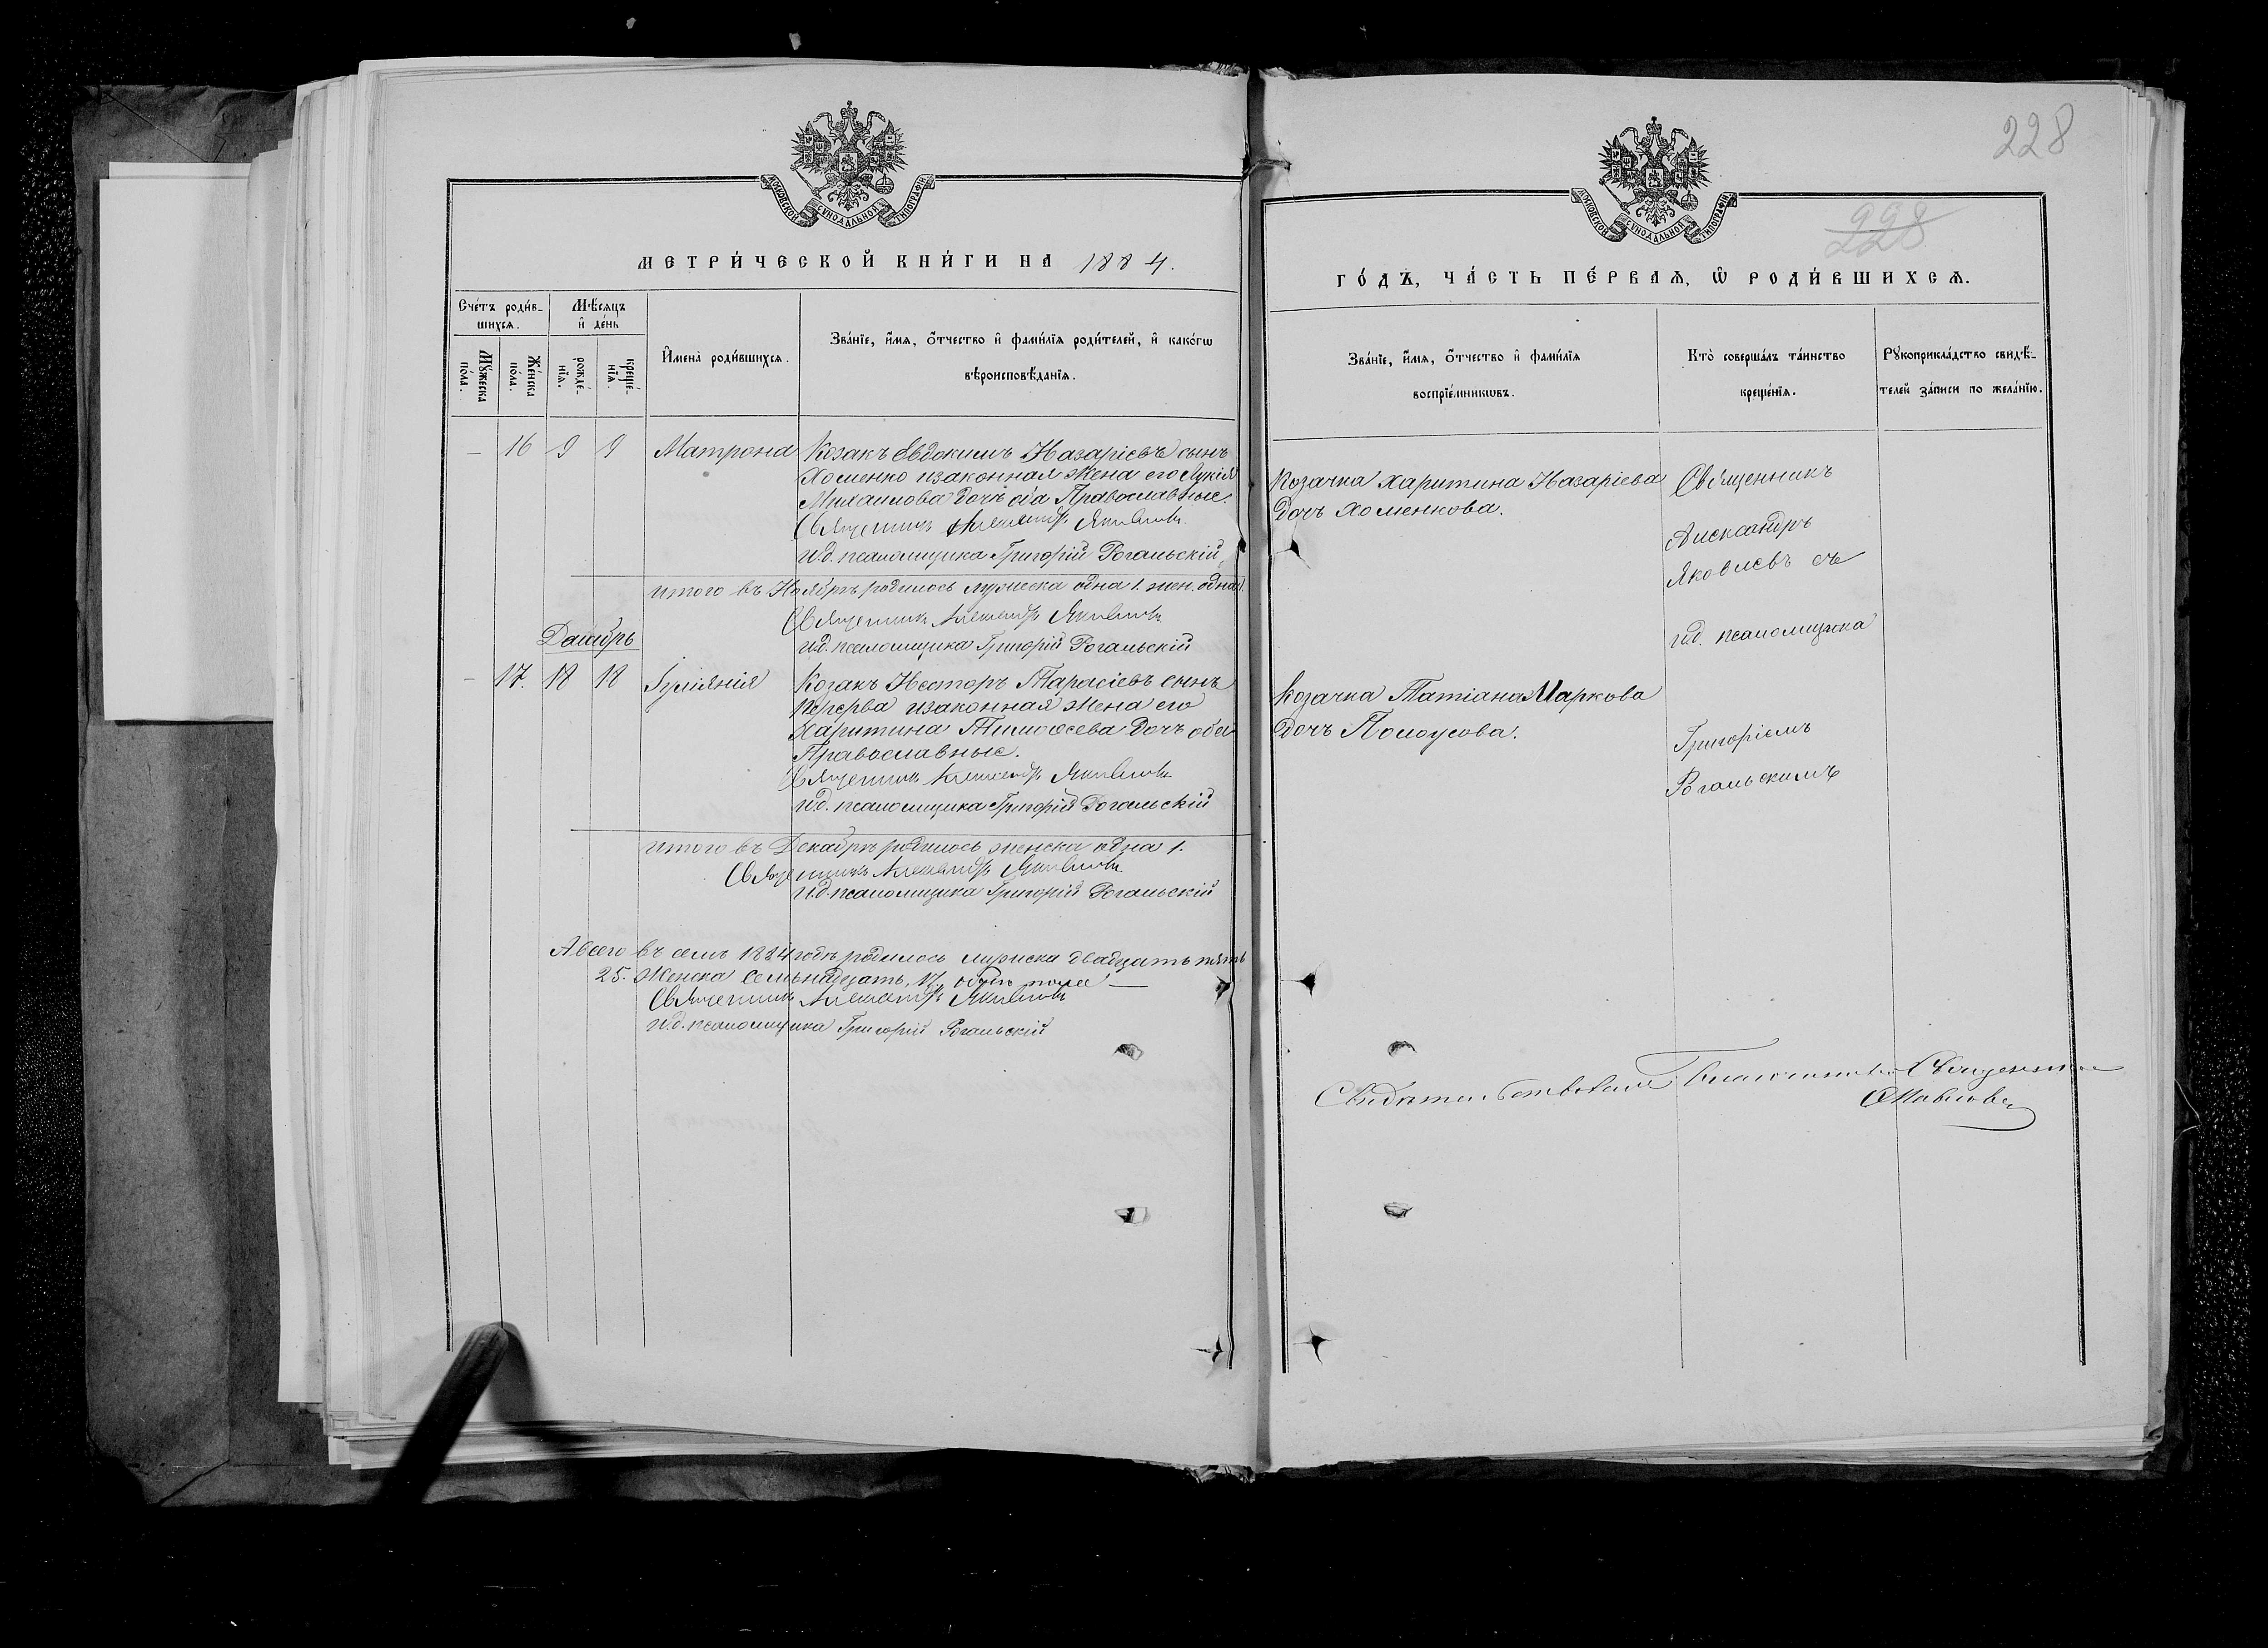 228
228
МОСКОВСКОЙ СѴНОДАЛЬНОЙ ТИПОГРАФІИ
МОСКОВСКОЙ СѴНОДАЛЬНОЙ ТИПОГРАФІИ
МЕТРИ́ЧЕСКОЙ КНИ́ГИ НА 1884.
ГО́ДЪ, ЧА́СТЬ ПЕ́РВАѦ, Ѡ҆ РОДИ́ВШИХСѦ.
Сче́тъ роди́в-
шихсѧ.
Мꙋ́жеска
по́ла.
Же́нска
по́ла.
Мѣ́сѧцъ
и҆ де́нь
рожде́-
нїѧ.
креще́-
нїѧ.
И҆мена̀ роди́вшихсѧ.
Зва́нїе, и҆́мѧ, ѻ҆́тчество и҆ фами́лїѧ роди́телей, и҆ како́гѡ
вѣроисповѣ́данїѧ.
Зва́нїе, и҆́мѧ, ѻ҆́тчество и҆ фами́лїѧ
воспрїе́мникѡвъ.
Кто̀ соверша́лъ та́инство
креще́нїѧ.
Рꙋкоприкла́дство свидѣ́-
телей за́писи по жела́нїю.
— 16 9 9 Матрона Козакъ Евдокимъ Назаріевъ сынъ
Хоменко изаконная жена его Лукія
Михаилова дочь оба Православные.
Священникъ Александръ Яковлевъ
и.д. псаломщика Григорій Рогальскій
Козачка Харитина Назаріева
дочь Хоменкова.
Священникъ
Александръ
Яковлевъ съ
и.д. псаломщика
Григоріемъ
Рогальскимъ
итого въ Ноябрѣ родилось мужеска одна 1. жен. одна 1.
Священникъ Александръ Яковлевъ
и.д. псаломщика Григорій Рогальскій
Декабрь
— 17. 18 18 Іуліянія Козакъ Несторъ Тарасіевъ сынъ
Перерва изаконная жена его
Харитина Тимоѳеева дочь оба
Православные.
Священникъ Александръ Яковлевъ
и.д. псаломщика Григорій Рогальскій
Козачка Татіана Маркова
дочь Полоусова.
итого въ Декабрѣ родилось женска одна 1.
Священникъ Александръ Яковлевъ
и.д. псаломщика Григорій Рогальскій
А всего въ семъ 1884 годѣ родилось мужеска двадцать пять
25. Женска семьнадцать, 17, обоего пола —
Священникъ Александръ Яковлевъ
и.д. псаломщика Григорій Рогальскій
Свидѣтельствовалъ Благочинный Священникъ
Павловъ